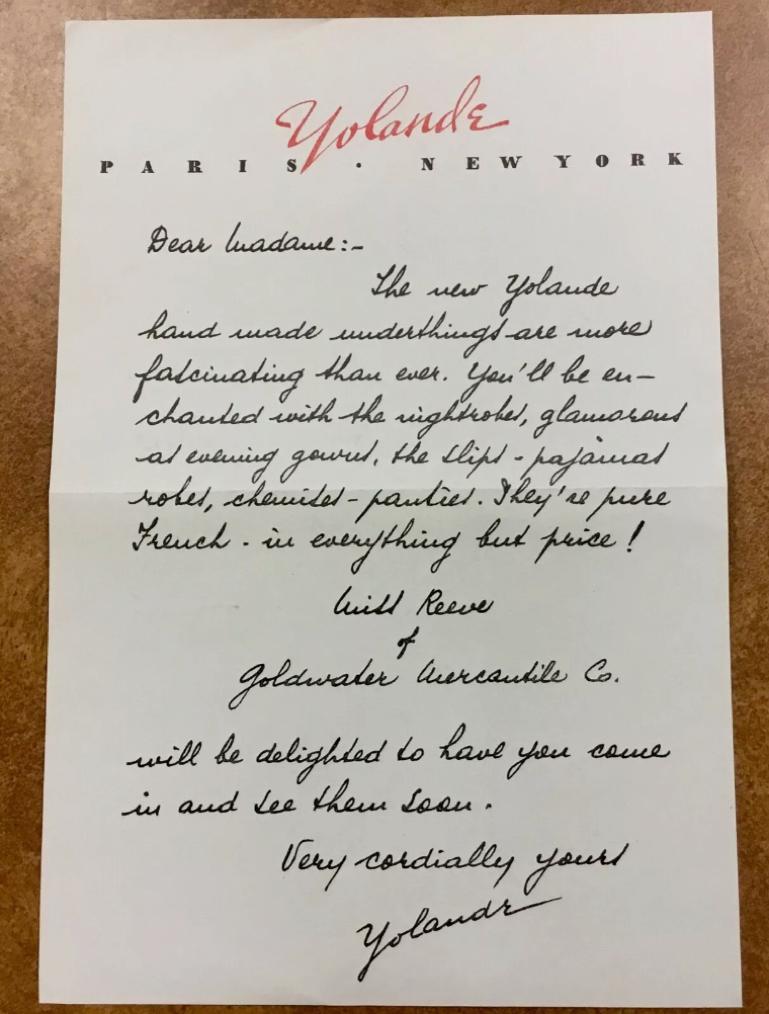 Yolande
PARIS · NEW YORK
Dear Madame:-
The new Yolande
hand made underthings are more
fascinating than ever. You'll be en-
chanted with the nightrobes, glamorous
as evening gowns, the slips - pajamas
robes, chemises - panties. They're pure
French - in everything but price!
Miss Reeve
of
Goldwater Mercantile Co.
will be delighted to have you come
in and see them soon.
Very cordially yours
Yolande